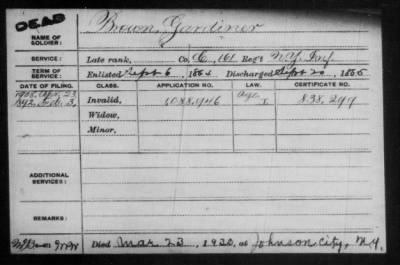 DEAD
NAME OF SOLDIER: Brown, Gardiner
SERVICE: Late rank, Co. C, 161 Reg't N.Y. Inf.
TERM OF SERVICE: Enlisted Sept 6, 1864 Discharged Sept 20, 1865
DATE OF FILING. CLASS. APPLICATION NO. LAW. CERTIFICATE NO.
Age
Invalid, 1088,946 838,299
Widow,
Minor,
ADDITIONAL SERVICES:
REMARKS:
Died Mar 23, 1920, at Johnson City, N.Y.